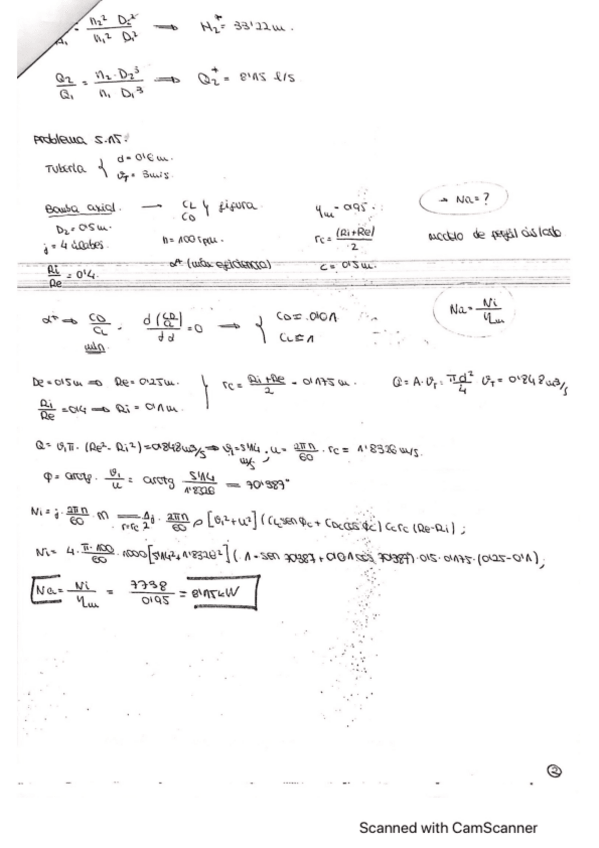 H₁ = n₂² D₂² / n₁² D₁² → H₂⁺ = 33'22 m.
Q₂/Q₁ = n₂·D₂³ / n₁ D₁³ → Q₂⁺ = 8'15 l/s
Problema 5.15:
Tubería { d = 0'6 m.
v_T = 3 m/s.
Bomba axial. → CL y figura. η_m = 0'95. → Na = ?
CD
D₂ = 0'5 m.
j = 4 álabes. n = 100 rpm. r_c = (Ri+Re)/2 modelo de perfil aislado
Ri/Re = 0'4. α* (máx eficiencia) c = 0'5 m.
α* ⇒ CD/CL . d(CD/CL)/dα = 0 → { CD = .0'01 Na = Ni/η_m
mín CL = 1
De = 0'5 m ⇒ Re = 0'25 m. } r_c = (Ri+Re)/2 = 0'175 m. Q = A·v_T = πd²/4 v_T = 0'848 m³/s
Ri/Re = 0'4 → Ri = 0'1 m.
Q = v₁π·(Re²-Ri²) = 0'848 m³/s ⇒ v₁ = 5'14 m/s; u = 2πn/60 · r_c = 1'8326 m/s.
φ = arctg. v₁/u = arctg 5'14/1'8326 = 70'387°
Ni = j· 2πn/60 M r=rc ½ j· 2πn/60 ρ [v₁²+u²] (CL sen φc + CD cos φc) C_c r_c (Re-Ri);
Ni = 4· π·100/60 ·1000 [5'14²+1'8326²] (1·sen 70'387+0'01 cos 70'387)·0'5·0'175·(0'25-0'1);
Na = Ni/η_m = 7738/0'95 = 8'15 kW
2
Scanned with CamScanner